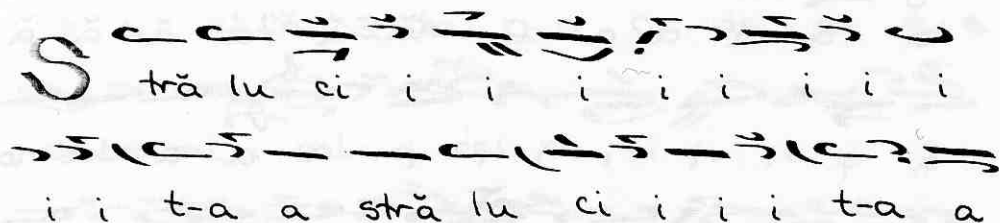 Stră lu ci i i i i i i i i
i i t-a a stră lu ci i i i t-a a